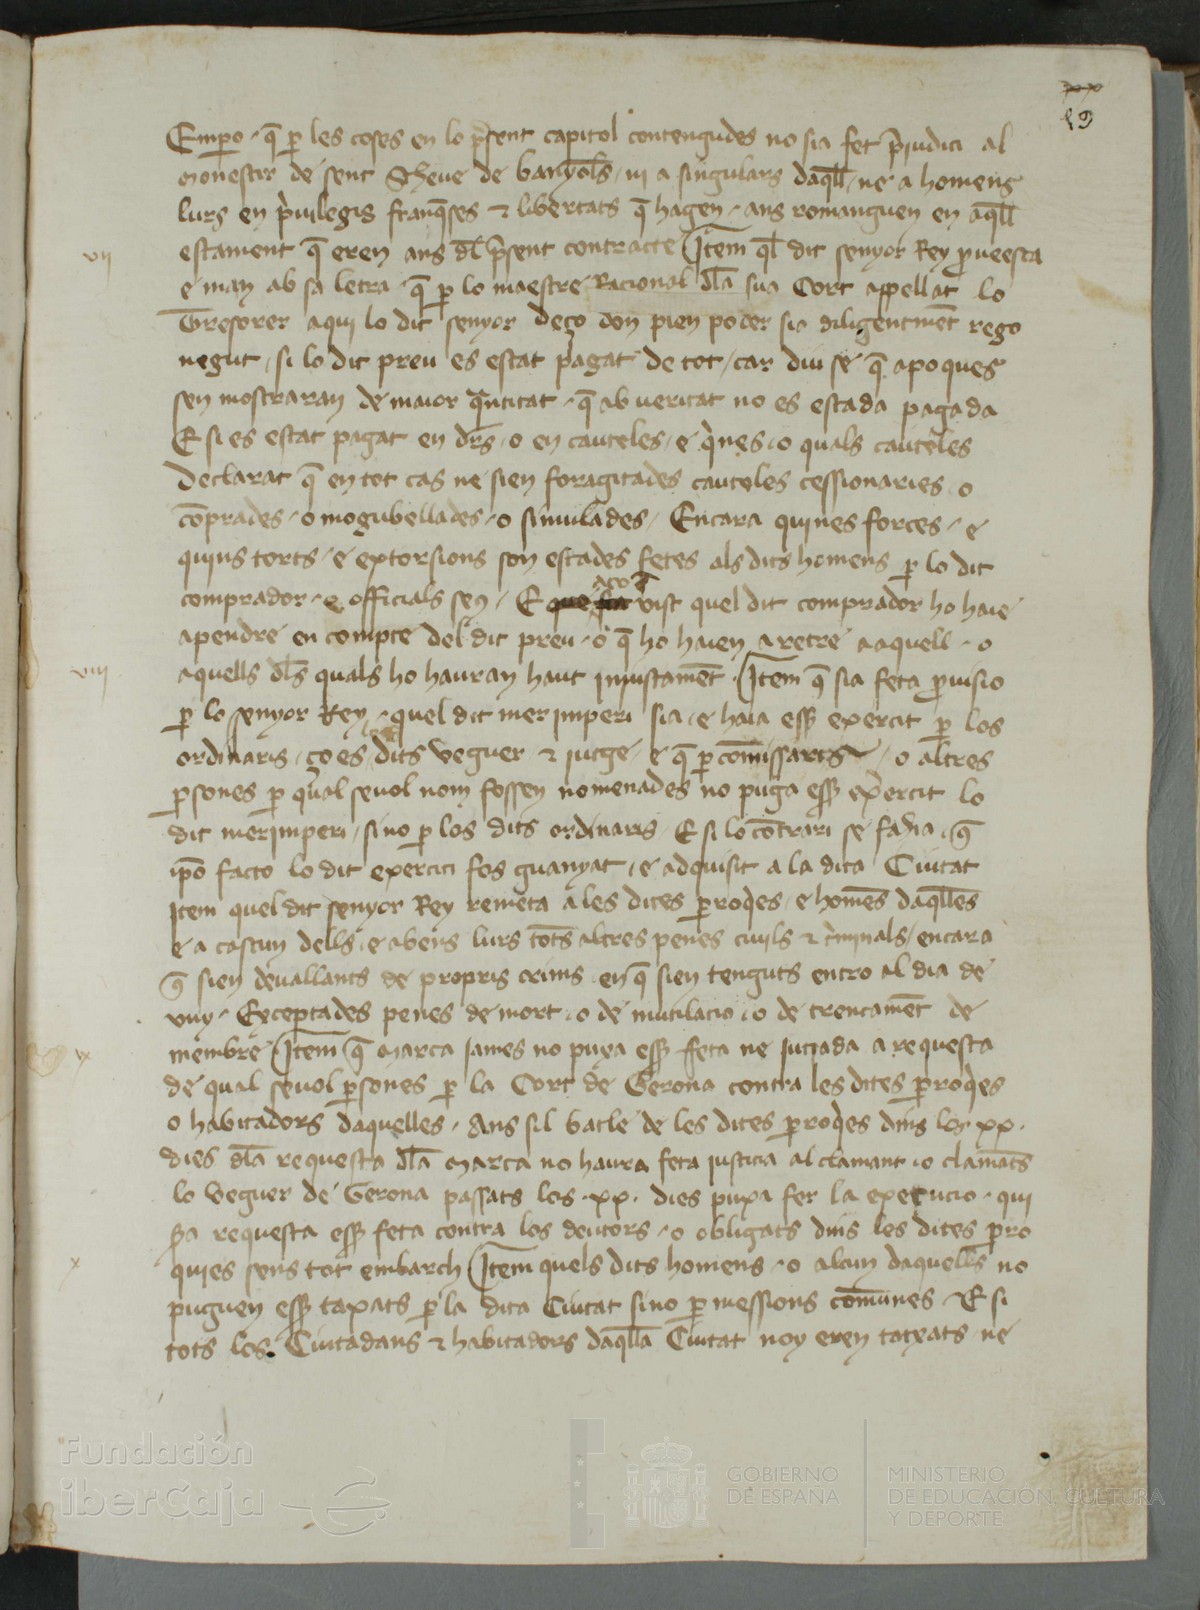 xx
19
Empero · q̄ ꝑ les coses en lo p̃sent capitol contengudes no sia fet p̃iudici al
monestir de sent Stheue de banyols / ni a singulars daq̃ll / ne a homens
lurs en p̃uilegis franq̃ses ⁊ libertats q̄ hagen · ans romanguen en aq̃ll
vii
estament q̄ eren ans dl̃ p̃sent contracte Item q̃l dit senyor Rey ꝓueesca
e man ab sa letra · q̄ ꝑ lo maestre Racional dl̃a sua Cort appellat lo
Tresorer aqui lo dit senyor deço don plen poder sia diligentment̃ rego
negut / si lo dit preu es estat pagat de tot / car diu se q̄ apoques
sen mostraran de maior quãntitat · q̄ ab ueritat no es estada pagada
E si es estat pagat en drs̃ · o en cauteles · e quines · o quals cauteles
declarat q̄ en tot cas ne sien foragitades cauteles cessionaries · o
cõprades · o mogubellades · o simulades / Encara quines forces · e
quins torts · e extorsions son estades fetes als dits homens ꝑ lo dit
aço
comprador · e officials seus / E que sia vist quel dit comprador ho haie
apendre en compte del dit preu · o q̄ ho haien aretre aaquell · o
viii
aquells dl̃s quals ho hauran haut iniustamẽt · Item q̄ sia feta ꝓuisio
ꝑ lo senyor Rey · quel dit mer imperi sia · e haia ess̃ exercit ꝑ los
ordinaris · ço es dits veguer ⁊ jutge · e q̄ ꝑ comissaris · o altres
ꝑsones ꝑ qual seuol nom fossen nomenades no puga ess̃ exercit lo
dit mer imperi / sino ꝑ los dits ordinaris · E si lo cõtrari se fahia · q̄
ip̃o facto lo dit exercici fos guanyat · e adquisit a la dita Ciutat
Item quel dit senyor Rey remeta a les dites ꝑroq̃es · e homẽs daq̃lles
e a cascun dells · e abens lurs totš altres penes ciuils ⁊ criminals / encara
q̄ sien deuallants de propris crims en q̄ sien tenguts entro al dia de
vuy · Exceptades penes de mort · o de mutilacio · o de trencamẽt de
ix
membre Item q̄ marca james no puxa ess̃ feta ne jutjada a requesta
de qual seuol ꝑsones ꝑ la Cort de Gerona contra les dites ꝑroq̃es
o habitadors daquelles · Ans sil batle de les dites ꝑroq̃es dins los xx ·
dies dl̃a requesta dl̃a marca no haura feta justicia al clamant · o clamãts
lo veguer de Gerona passats los · xx · dies puxa fer la execucio · qui
ꝑa requesta ess̃ feta contra los deutors · o obligats dins les dites ꝑro
x
quies sens tot embarch Item quels dits homens · o alcun daquells no
puguen ess̃ taxats ꝑ la dita Ciutat sino ꝑ messions comunes · E si
tots los Ciutadans ⁊ habitadors daq̃lla Ciutat noy eren tatxats ne
Fundación
iberCaja
GOBIERNO
DE ESPAÑA
MINISTERIO
DE EDUCACIÓN, CULTURA
Y DEPORTE